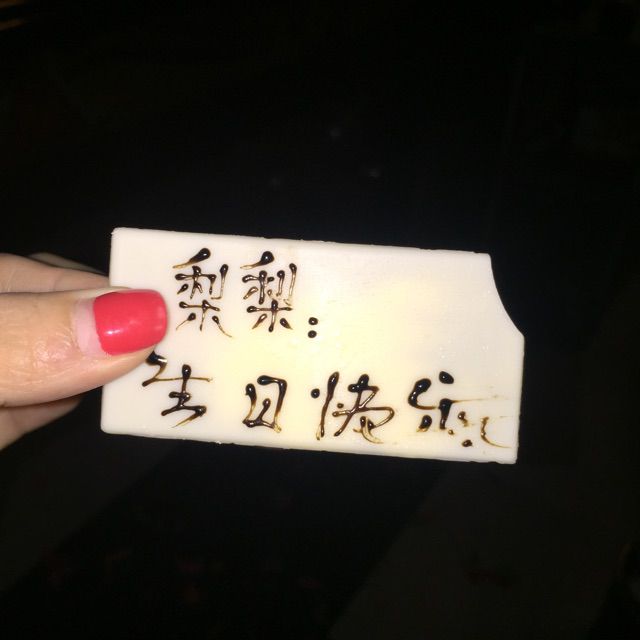 梨梨:
生日快乐